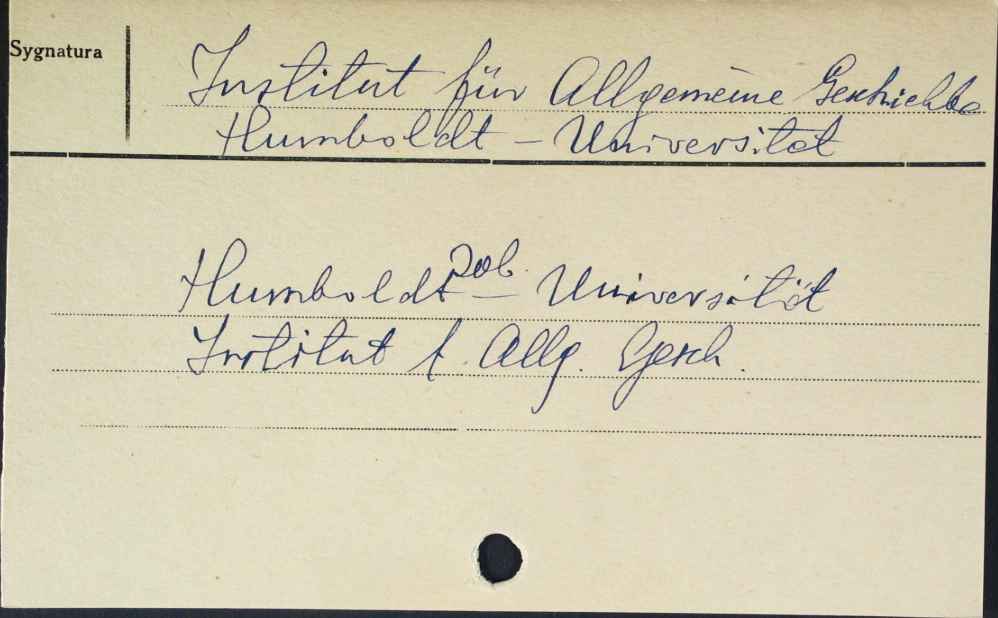 Sygnatura
Institut für Allgemeine Geschichte
Humboldt - Universität
zob.
Humboldt - Universität
Institut f. Allg. Gesch.